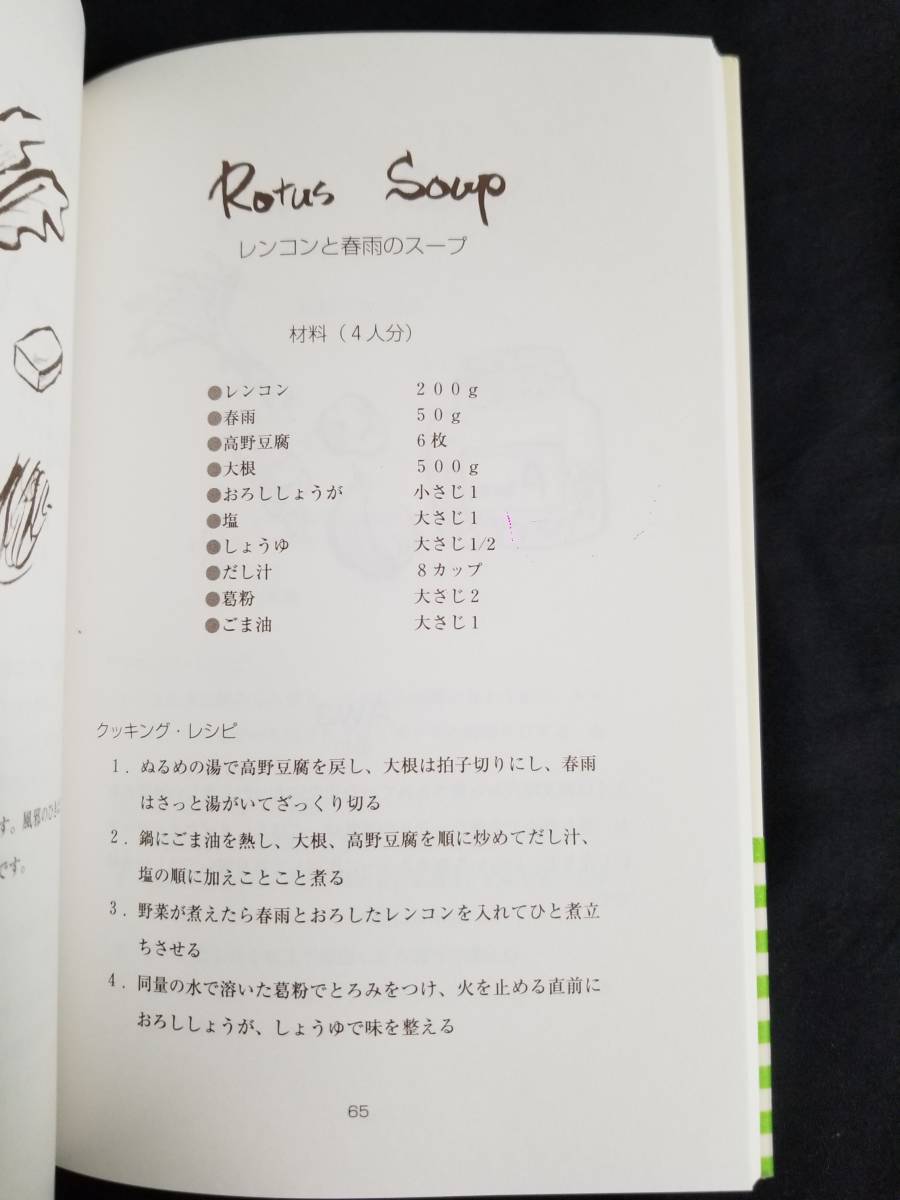 す。風邪のひき
です。
Rotus Soup
レンコンと春雨のスープ
材料（４人分）
●レンコン ２００ｇ
●春雨 ５０ｇ
●高野豆腐 ６枚
●大根 ５００ｇ
●おろししょうが 小さじ１
●塩 大さじ１
●しょうゆ 大さじ1/2
●だし汁 ８カップ
●葛粉 大さじ２
●ごま油 大さじ１
クッキング・レシピ
１．ぬるめの湯で高野豆腐を戻し、大根は拍子切りにし、春雨
はさっと湯がいてざっくり切る
２．鍋にごま油を熱し、大根、高野豆腐を順に炒めてだし汁、
塩の順に加えことこと煮る
３．野菜が煮えたら春雨とおろしたレンコンを入れてひと煮立
ちさせる
４．同量の水で溶いた葛粉でとろみをつけ、火を止める直前に
おろししょうが、しょうゆで味を整える
65